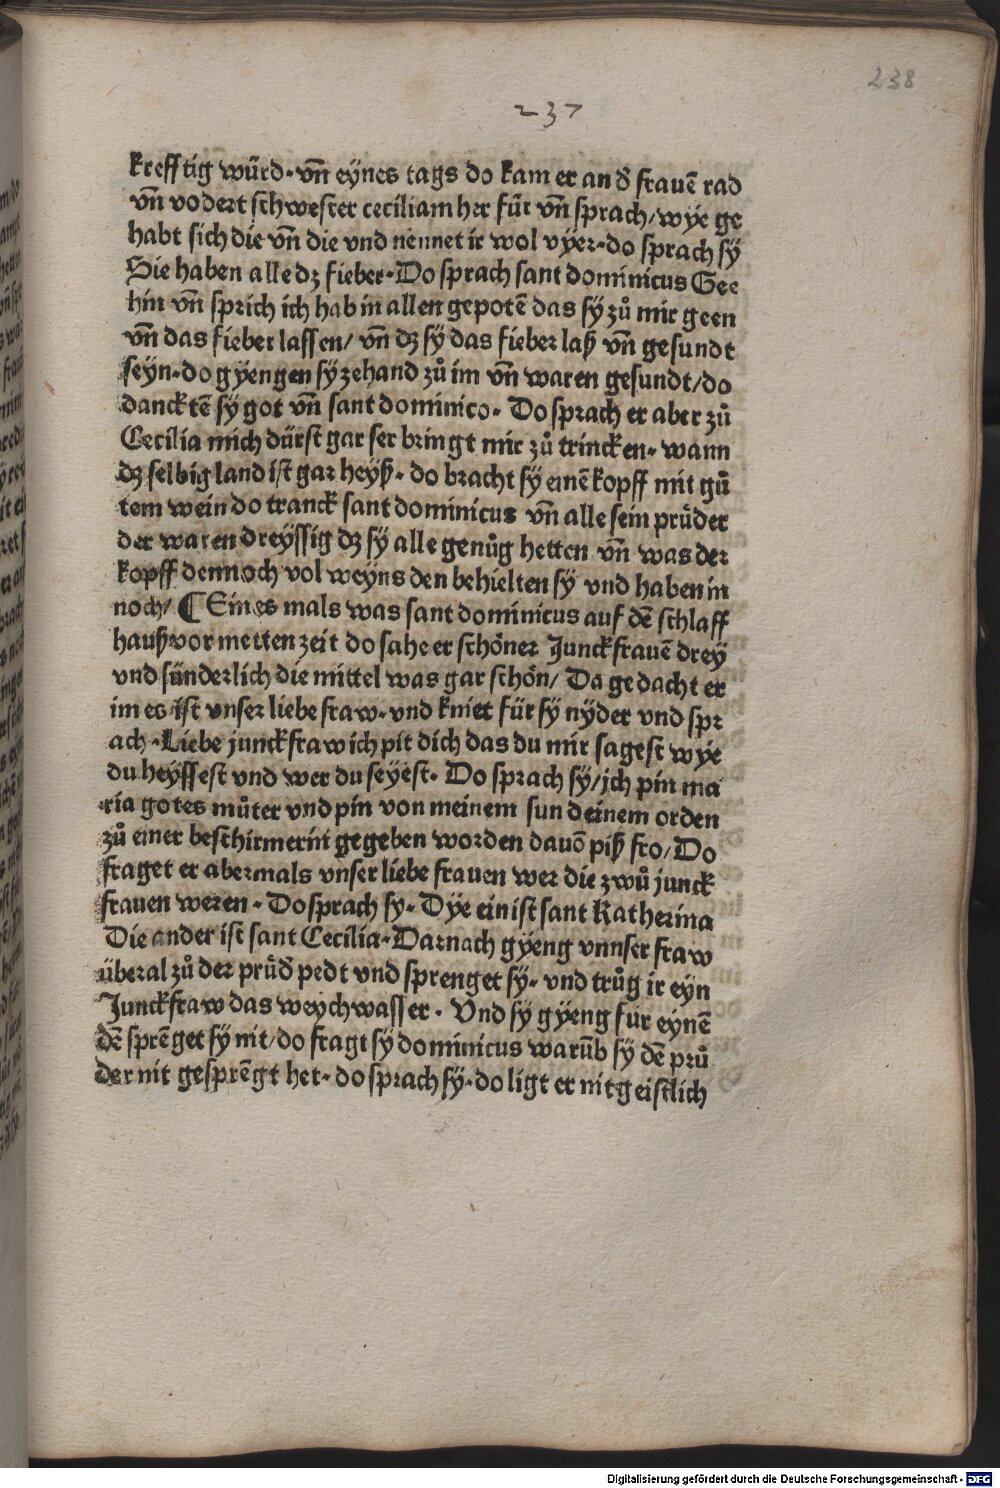 238
237
krefftig würd. vn̄ eÿnes tags do kam er an d̕ frauē rad
vn̄ vodert schwester ceciliam her für vn̄ sprach/ wÿe ge
habt sich die vn̄ die vnd nennet ir wol vÿer. do sprach sÿ
Sie haben alle dz fieber. Do sprach sant dominicus Gee
hin vn̄ sprich ich hab in allen gepotē das sÿ zů mir geen
vn̄ das fieber lassen/ vn̄ dz sÿ das fieber laß vn̄ gesundt
seÿn. do gÿengen sÿ zehand zů im vn̄ waren gesundt/ do
dancktē sÿ got vn̄ sant dominico. Do sprach er aber zů
Cecilia mich dürst gar ser bringt mir zů trincken. wann
dz selbig land ist gar heÿß. do bracht sÿ einē kopff mit gů
tem wein do tranck sant dominicus vn̄ alle sein prüder
der waren dreÿssig dz sÿ alle genůg hetten vn̄ was der
kopff dennoch vol weÿns den behielten sÿ vnd haben in
noch/ ¶ Eines mals was sant dominicus auf dē schlaff
hauß vor metten zeit do sahe er schöner Junckfrauē dreÿ
vnd sünderlich die mittel was gar schön/ Da gedacht er
im es ist vnser liebe fraw. vnd kniet für sÿ nÿder vnd spr
ach. Liebe junckfraw ich pit dich das du mir sagest wÿe
du heÿssest vnd wer du seÿest. Do sprach sÿ/ ich pin ma
ria gotes můter vnd pin von meinem sun deinem orden
zů einer beschirmerin gegeben worden dauō piß fro/ Do
fraget er abermals vnser liebe frauen wer die zwů junck
frauen weren. Do sprach sy. Dÿe ein ist sant Katherina
Die ander ist sant Cecilia. Darnach gÿeng vnnser fraw
überal zů der prüd̕ pedt vnd sprenget sÿ. vnd trůg ir eÿn
Junckfraw das weÿchwasser. Vnd sÿ gÿeng für eÿnē
dē sprēget sÿ nit/ do fragt sÿ dominicus warūb sÿ dē prů
der nit gesprēgt het. do sprach sÿ. do ligt er nit geistlich
Digitalisierung gefördert durch die Deutsche Forschungsgemeinschaft - DFG